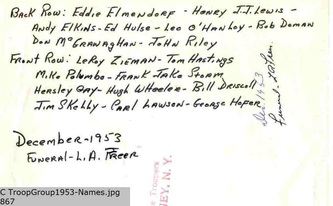 Back Row: Eddie Elmendorf - Henry J.J. Lewis -
Andy Elkins - Ed Hulse - Leo O'Hanloy - Bob Doman
Don McGranaghan - John Riley
Front Row: LeRoy Zieman - Tom Hastings
Mike Palumbo - Frank Jake Storm
Hensley Gay - Hugh Wheeler - Bill Driscoll
Jim Skelly - Carl Lawson - George Hofer
Dec 1953
December - 1953
Funeral - L.A.
Troopers
NEY, N.Y.
C TroopGroup1953-Names.jpg
867